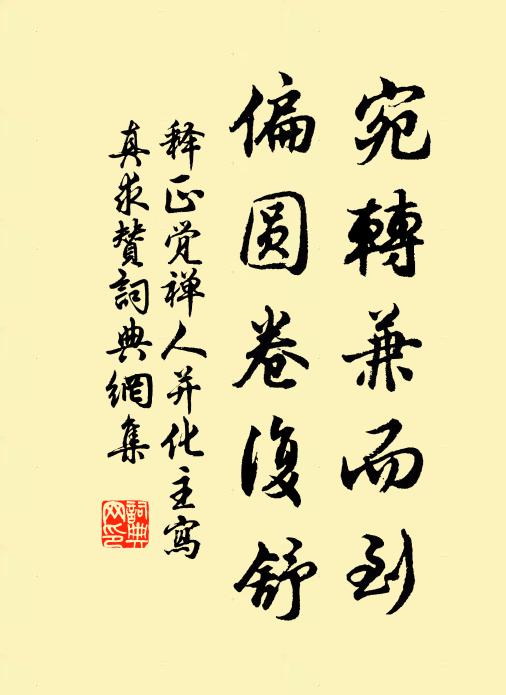 宛轉兼而到
偏圆卷復舒
释正觉禅人并化主寫
真求赞詞典網集
詞典网印